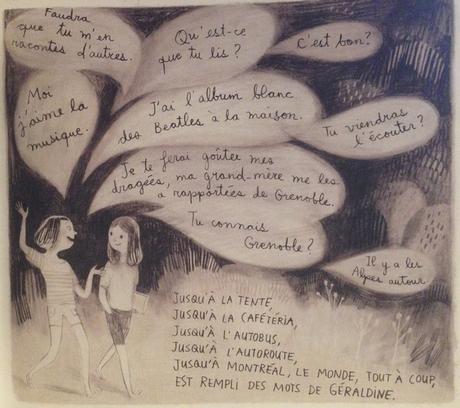 Faudra
que tu m'en
racontes d'autres.
Qu'est-ce
que tu lis ?
C'est bon ?
Moi
j'aime la
musique.
J'ai l'album blanc
des Beatles à la maison.
Tu viendras
l'écouter ?
Je te ferai goûter mes
dragées, ma grand-mère me les
a rapportées de Grenoble.
Tu connais
Grenoble ?
Il y a les
Alpes autour
JUSQU'À LA TENTE,
JUSQU'À LA CAFÉTÉRIA,
JUSQU'À L'AUTOBUS,
JUSQU'À L'AUTOROUTE,
JUSQU'À MONTRÉAL, LE MONDE, TOUT À COUP,
EST REMPLI DES MOTS DE GÉRALDINE.